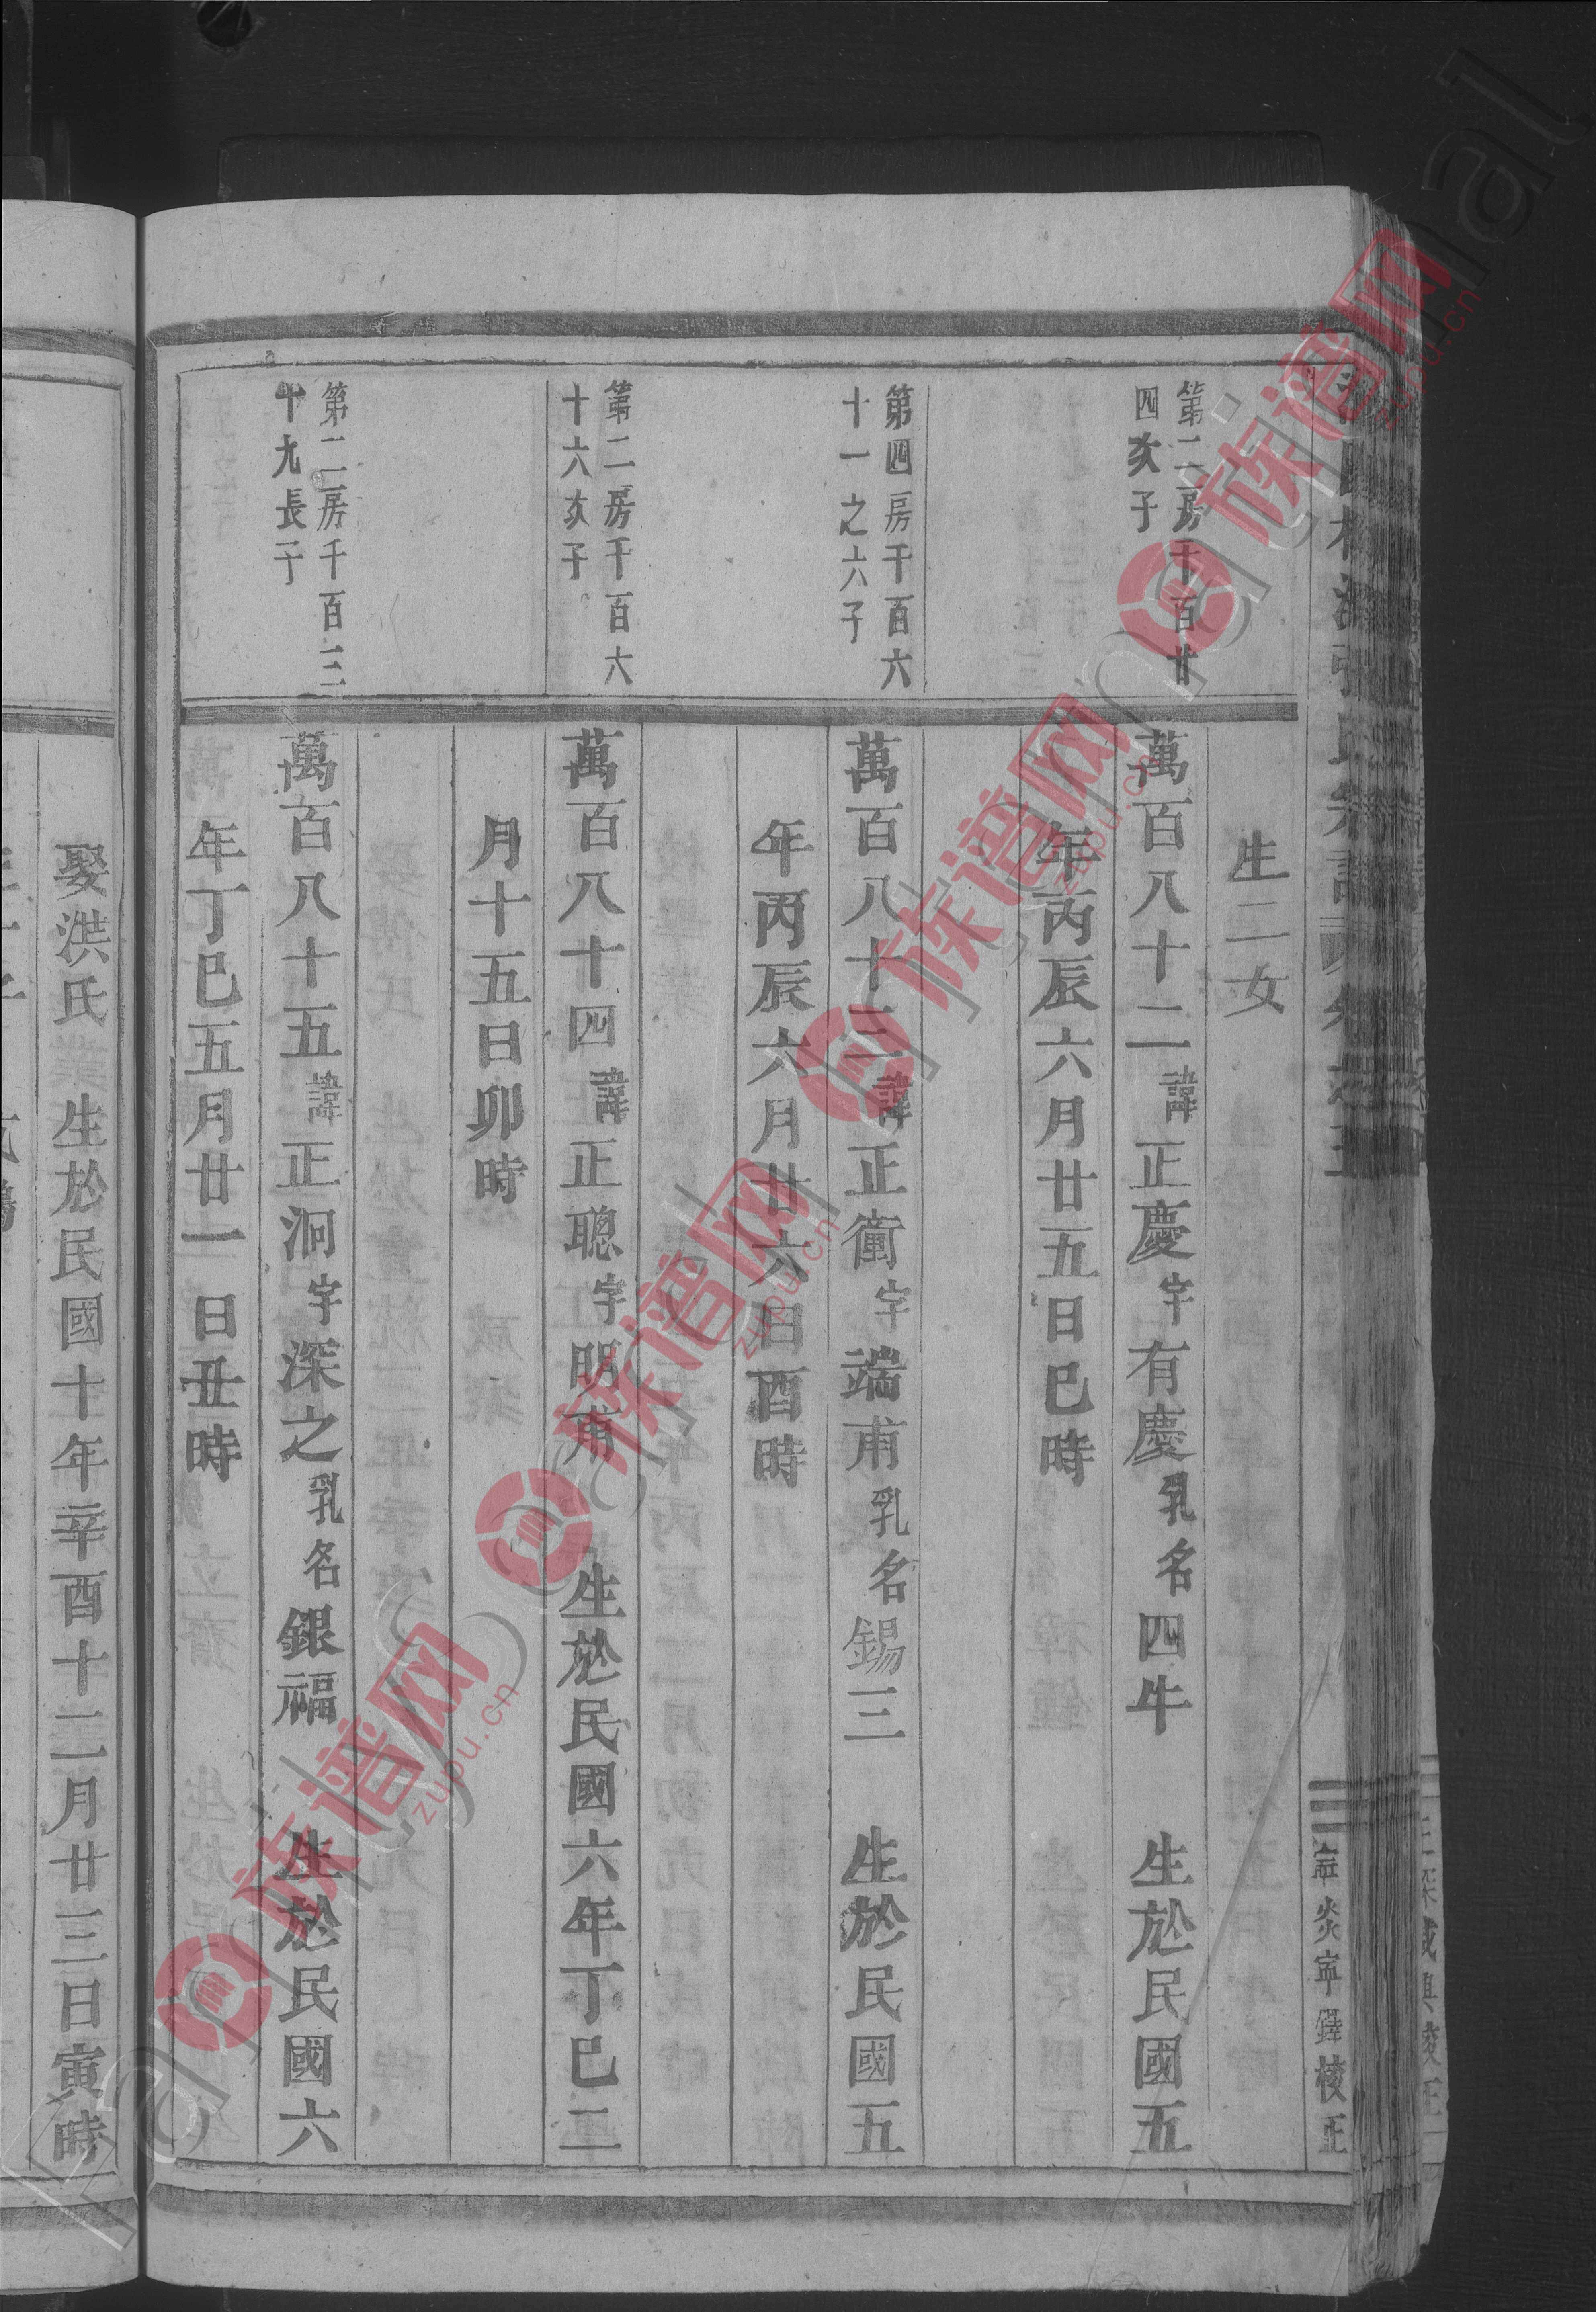 生二女
第二房千百廿
四亥子
萬百八十二諱正慶字有慶乳名四牛　生於民國五
年丙辰六月廿五日巳時
第四房千百六
十一之六子
萬百八十三諱正衡字端甫乳名錫三　生於民國五
年丙辰六月廿六日酉時
第二房千百六
十六亥子
萬百八十四諱正聰字明甫　生於民國六年丁巳二
月十五日卯時
第二房千百三
十九長子
萬百八十五諱正洞字深之乳名銀福　生於民國六
年丁巳五月廿一日丑時
娶洪氏　生於民國十年辛酉十二月廿三日寅時
族谱网
zupu.cn